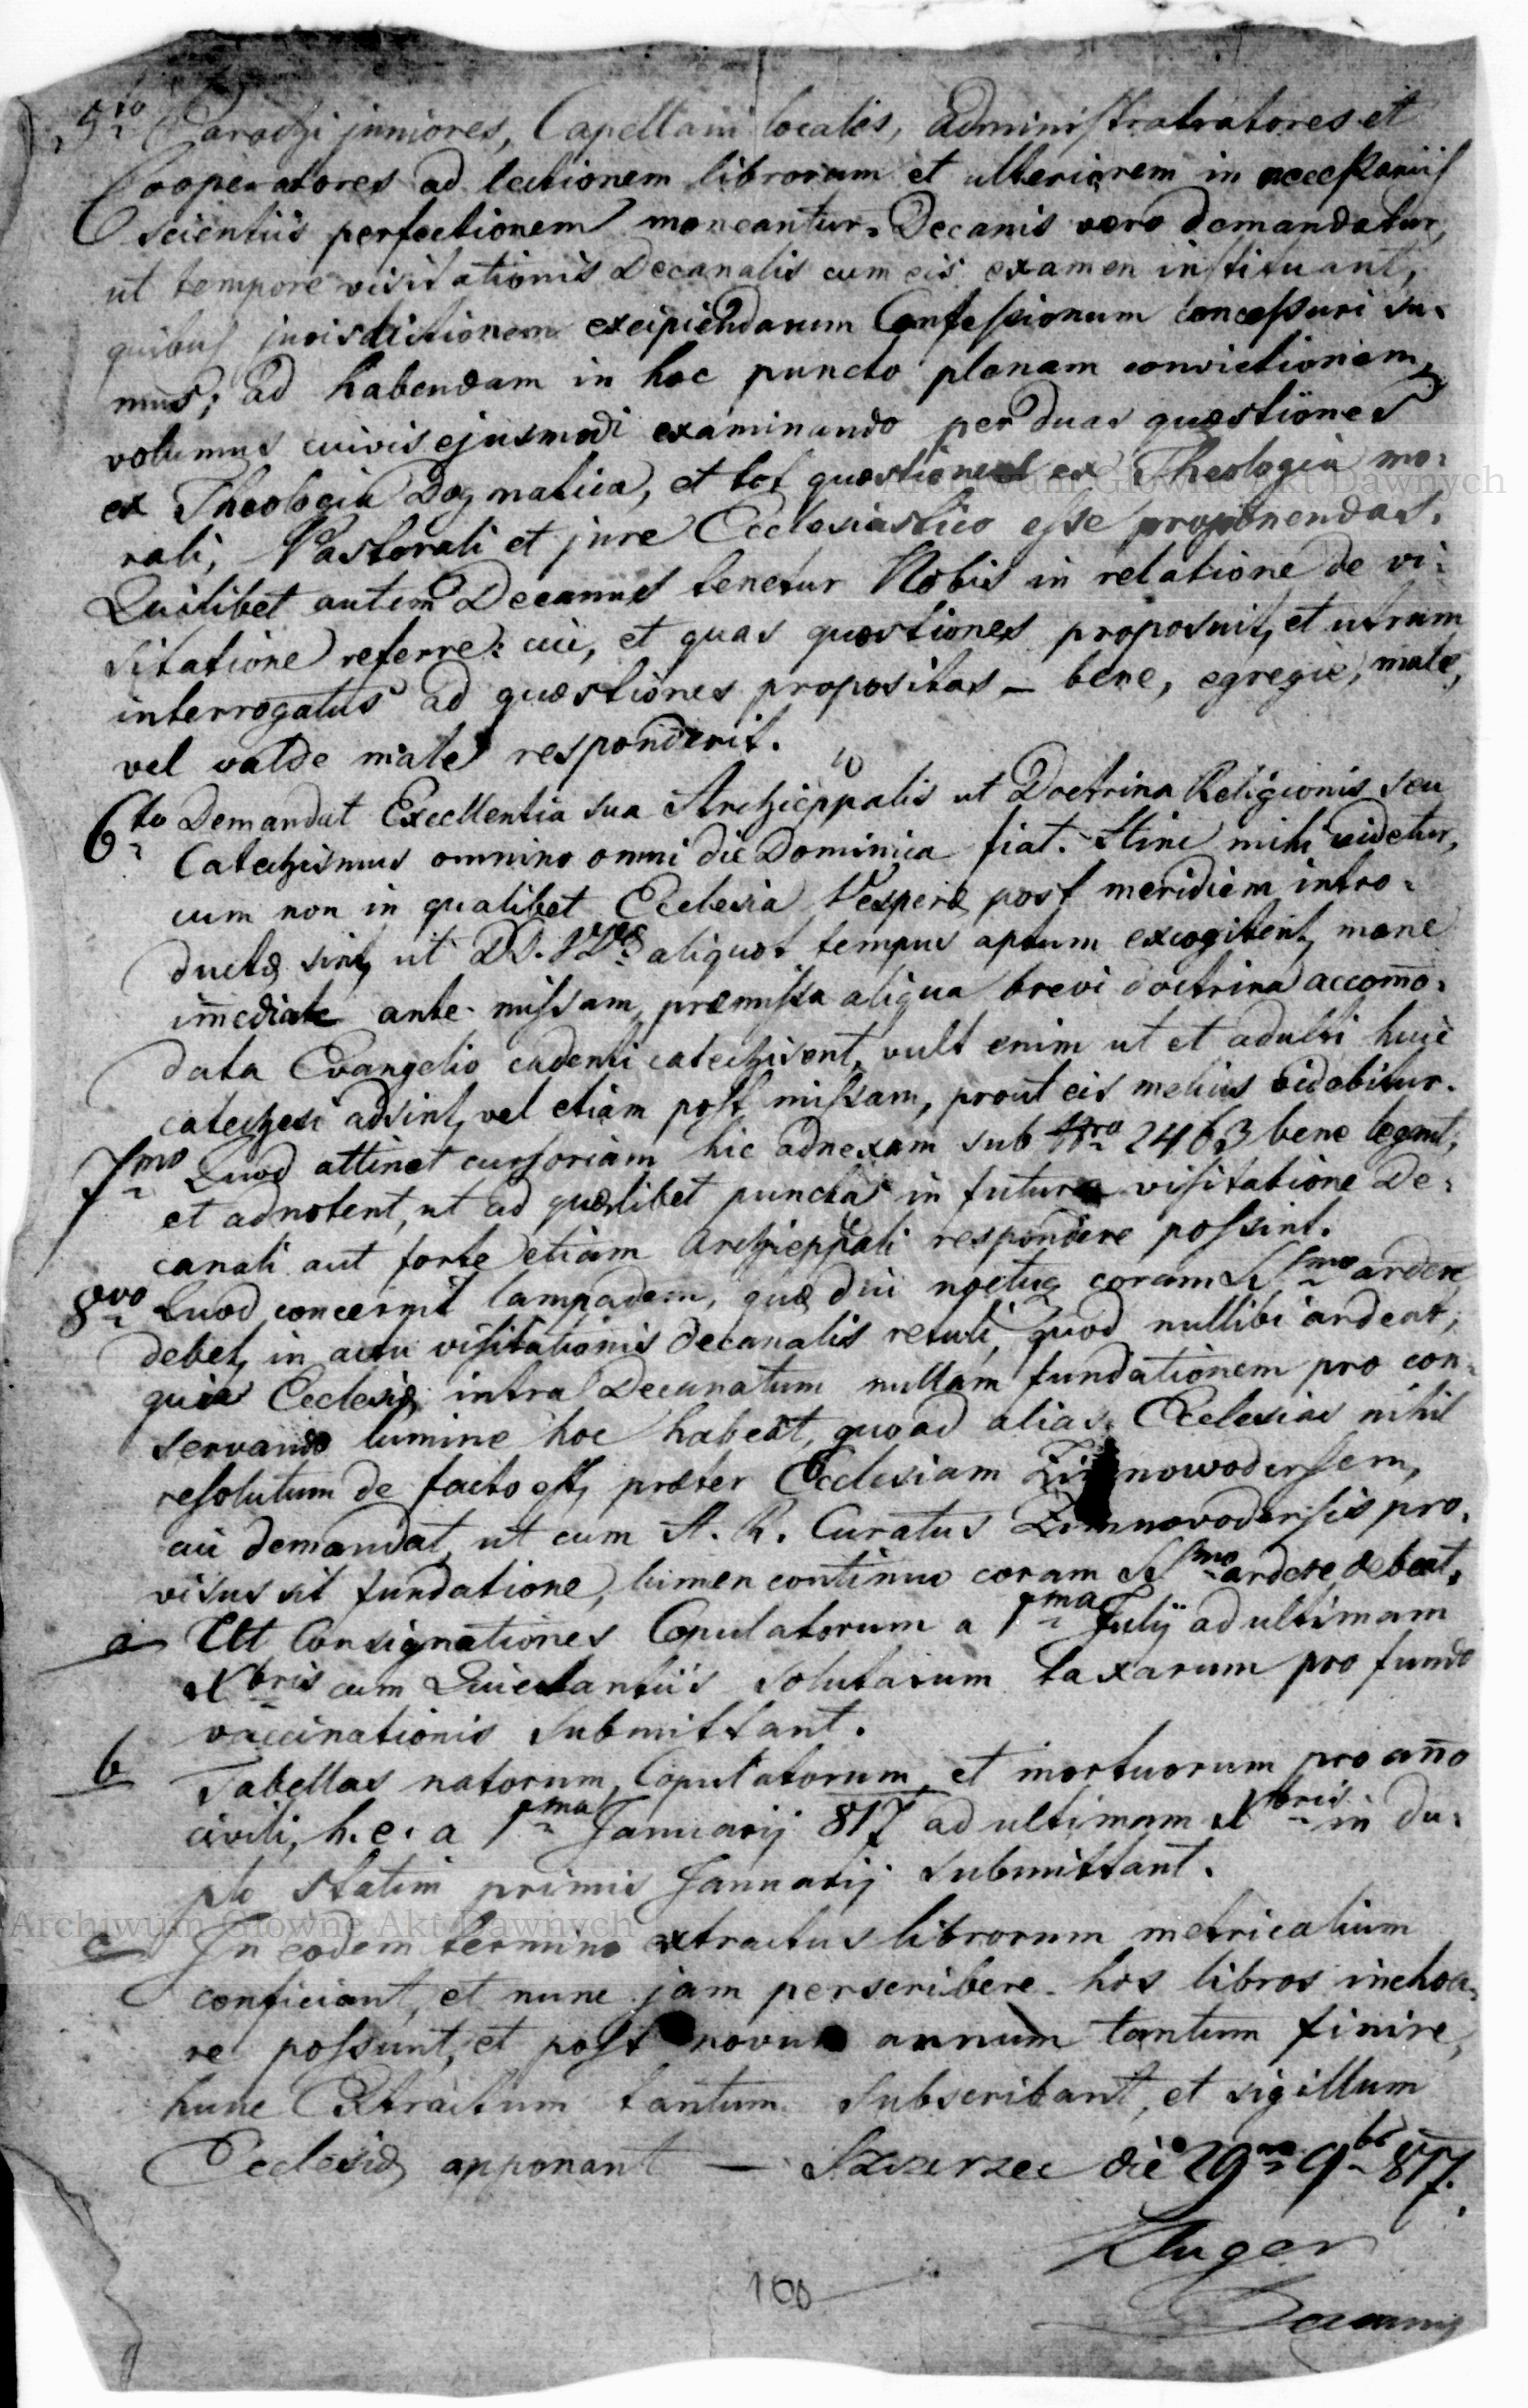 5to Parochi juniores, Capellani locales, Administratratores et
Cooperatores ad lectionem librorum et ulteriorem in necessariis
scientiis perfectionem moneantur. Decanis vero demandetur,
ut tempore visitationis Decanalis cum eis examen instituant,
quibus jurisdictionem excipiendarum Confessionum concessuri su-
mus; ad habendam in hoc puncto plenam convictionem,
volumus cuivis ejusmodi examinando per duas quæstiones
ex Theologia Dogmatica, et tot quæstiones ex Theologia mo-
rali, Pastorali et jure Ecclesiastico esse proponendas.
Quilibet autem Decanus tenetur Nobis in relatione de vi-
sitatione referre: cui, et quas quæstiones proposuit, et utrum
interrogatus ad quæstiones propositas – bene, egregie, male,
vel valde male responderit.
6to Demandat Excellentia sua Archieppalis ut Doctrina Religionis seu
Catechismus omnino omni die Dominica fiat. Hinc mihi videtur,
cum non in qualibet Ecclesia Vesperæ post meridiem intro-
ductæ sint, ut DD. Vræ aliquot tempus aptum excogitent, mane
imediate ante missam, præmissa aliqua brevi doctrina accomo-
data Evangelio cadenti catechisent, vult enim ut et adulti huic
catechesi adsint, vel etiam post missam, prout eis melius videbitur.
7mo Quod attinet cursoriam hic adnexam sub Nro 2463 bene legant,
et adnotent, ut ad quælibet puncta in futura visitatione De-
canali aut forte etiam Archieppali respondere possint.
8vo Quod concernit lampadem, quæ diu noctuq coram SSmo ardere
debet, in actu visitationis decanalis retuli, quod nullibi ardeat,
quia Ecclesiæ intra Decanatum nullam fundationem pro con-
servando lumine hoc habeat, quoad alias Ecclesias nihil
resolutum de facto est, præter Ecclesiam Zimnowodensem,
cui demandat, ut cum A. R. Curatus Zimnovodensis pro-
visus sit fundatione, lumen continuo coram SSmo ardere debeat.
a Ut Consignationes Copulatorum a 1ma Julij ad ultimam
Xbris cum Quietantiis solutarum taxarum pro fundo
vaccinationis submittant.
b Tabellas natorum, Copulatorum, et mortuorum pro año
civili, h. e. a 1ma Januarij 817 ad ultimam Xbris in du-
plo statim primis Januarij submittant.
c In eodem termino extractus librorum metricalium
conficiant, et nunc jam perscribere hos libros inchoa-
re possunt, et post novum annum tantum finire,
hunc Extractum tantum subscribant, et sigillum
Ecclesiæ apponant — Szczerzec die 29na 9br 817.
Kluger
Decanus
160
Archiwum Główne Akt Dawnych
Archiwum Główne Akt Dawnych